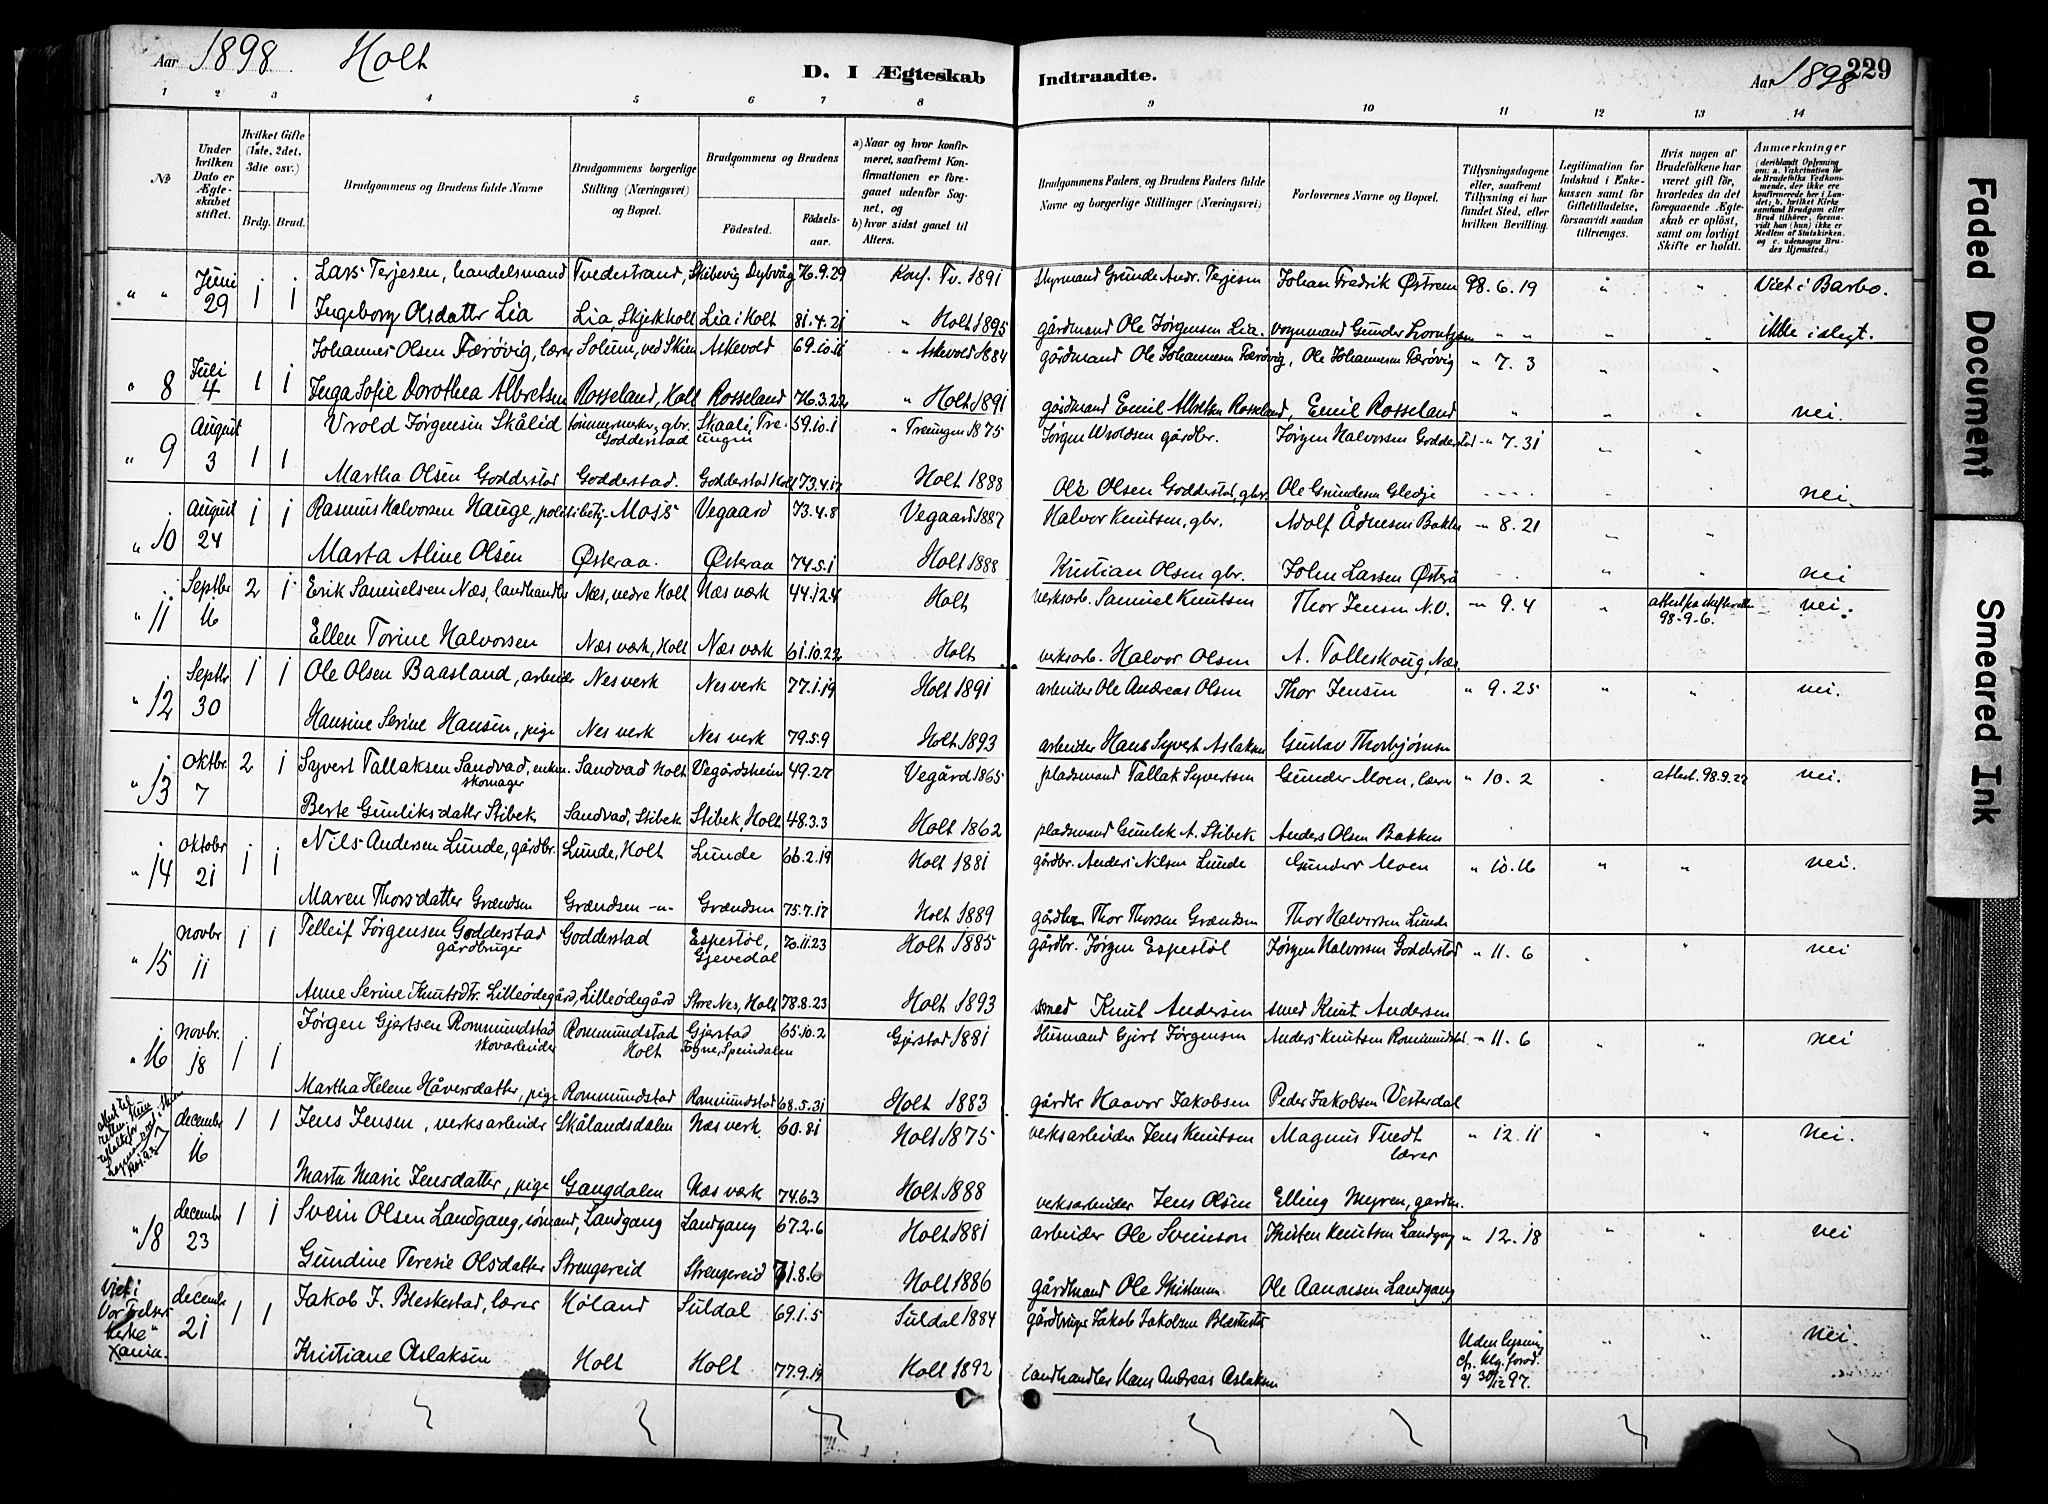 Aar 1898. Holt
D. I Ægteskab Indtraadte.
Aar 1898 229
1 2 3 4 5 6 7 8 9 10 11 12 13 14
№
Under hvilken Dato er Ægteskabet stiftet.
Hvilket Gifte (1ste, 2det, 3die osv.)
Brdg. Brud.
Brudgommens og Brudens fulde Navne
Brudgommens borgerlige Stilling (Næringsvei) og Bopæl.
Brudgommens og Brudens
Födested. Födselsaar.
a) Naar og hvor konfirmeret, saafremt Konfirmationen er foregaaet udenfor Sognet, og
b) hvor sidst gaaet til Alters.
Brudgommens Faders, og Brudens Faders fulde Navne og borgerlige Stillinger (Næringsvei)
Forlovernes Navne og Bopæl.
Tillysningsdagene eller, saafremt Tillysning ei har fundet Sted, efter hvilken Bevilling.
Legitimation for Indskud i Enkekassen samt for Giftetilladelse, forsaavidt saadan tiltrænges.
Hvis nogen af Brudefolkene har været gift för, hvorledes da det foregaaende Ægteskab er oplöst, samt om lovligt Skifte er holdt.
Anmerkninger
(deriblandt Oplysning om: a. Vakcination for de Brudefolks Vedkommende, der ikke ere konfirmerede her i Landet, b. hvilket Kirkesamfund Brudgom eller Brud tilhörer, forsaavidt han (hun) ikke er Medlem af Statskirken, og c. udensogns Brudes Hjemsted.
" " Juni 29 1 1 Lars Terjesen, handelsmand Tvedestrand, Skibevig Dybvåg 76.9.29 Konf. Tv. 1891 styrmand Grunde Andr. Terjesen Johan Fredrik Østrem 98.6.19 " " Viet i Barbo.
Ingeborg Olsdatter Lia Lia, Skjerkholt Lia i Holt 81.4.21 " Holt 1895 gårdmand Ole Jørgensen Lia. vognmand Gunder Lorentzen " " ikke i slegt.
" 8 Juli 4 1 1 Johannes Olsen Færøvig, lærer Solum, ved Skien Askevold 69.10.11 " Askevold 1884 gårdmand Ole Johannesen Færøvig, Ole Johannesen Færøvig " 7.3 " "
Inga Sofie Dorothea Albretsen Rosseland, Holt Rosseland 76.3.22 " Holt 1891 gårdmand Emil Albretsen Rosseland, Emil Rosseland " " " nei.
" 9 August 3 1 1 Vrold Jørgensen Skålid tømmermerker, gbr. Godderstad Skaali, Treungen 59.10.1 " Treungen 1875 Jørgen Wroldsen gårdbr. Jørgen Halvorsen Godderstad " 7.31 " "
Martha Olsen Godderstad Godderstad. Godderstad Holt 73.4.17 Holt 1888 Ole Olsen Godderstad, gbr. Ole Gundersen Gledje " " nei.
" 10 August 24 1 1 Rasmus Halvorsen Hauge, politibetj. Moss Vegaard 73.4.8 Vegaard 1887 Halvor Knutsen, gbr. Adolf Ådnesen Bakken " 8.21 " "
Marta Aline Olsen Østeraa. Østeraa 74.5.1 Holt 1888 Kristian Olsen gbr. John Larsen Østerå " " nei
" 11 Septbr 16 2 1 Erik Samuelsen Næs, landhandler Næs, nedre Holt Næs værk 44.12.4 Holt verksarb. Samuel Knutsen Thor Jensen N.V. " 9.4 " attest fra skifteretten 98-9-6. nei.
Ellen Torine Halvorsen Næs værk, Holt Næs værk 61.10.22 Holt verksarb. Halvor Olsen A. Tolleskoug, Næs.
" 12 Septbr 30 1 1 Ole Olsen Baasland, arbeider Nesverk Nes verk 77.1.19 Holt 1891 arbeider Ole Andreas Olsen Thor Jensen " 9.25 " " nei.
Hansine Serine Hansen, pige Nes verk Nes verk 79.5.9 Holt 1893 arbeider Hans Syvert Aslaksen Gustav Thorbjørnsen
" 13 Oktbr. 7 2 1 Syvert Tallaksen Sandvad, enkem. skomager Sandvad Holt Vegårdsheien 49.2.7 Vegård 1865 pladsmand Tallak Syvertsen Gunder Moen, lærer " 10.2 " attest. 98.9.22 nei.
Berte Gunliksdatter Stibek Sandvad, Stibek Stibek, Holt 48.3.3 Holt 1862 pladsmand Gunlek A. Stibek Anders Olsen Bakken
" 14 Oktober 21 1 1 Nils Andersen Lunde, gårdbr. Lunde, Holt Lunde 66.2.19 Holt 1881 gårdbr. Anders Nilsen Lunde Gunder Moen " 10.16 " " nei.
Maren Thorsdatter Grændsen Grændsen -"- Grændsen 75.7.17 Holt 1889 gårdbr. Thor Thorsen Grændsen Thor Halvorsen Lunde
" 15 Novbr 11 1 1 Telleif Jørgensen Godderstad gårdbruger Godderstad Espestøl, Gjevedal 70.11.23 Holt 1885 gårdbr. Jørgen Espestøl Jørgen Halvorsen Godderstad " 11.6 " " nei
Anne Serine Knutsdtr. Lilleødegård, Lilleødegård Store Nes, Holt 78.8.23 Holt 1893 smed Knut Andersen smed Knut Andersen
" 16 Novbr. 18 1 1 Jørgen Gjertsen Rommundstad skovarbeider Rommundstad Holt Gjerstad Sogne, 65.10.2 Gjerstad 1881 Husmand Gjert Jørgensen Anders Knutsen Rommundstad " 11.6 " " nei
Martha Helene Håversdatter, pige Rommundstad Rommundstad 68.5.31 Holt 1883 gårdbr Haavor Jakobsen Peder Jakobsen Vesterdal
december 16 1 1 Jens Jensen, verksarbeider Skålandsdalen Næs verk. 60.8.1 Holt 1875 verksarbeider Jens Knutsen Magnus Tvedt lærer " 12.11 " " nei.
Marta Marie Jensdatter, pige Gangdalen Næs værk 74.6.3 Holt 1888 verksarbeider Jens Olsen Elling Myren, gårdm.
" 18 december 23 1 1 Svein Olsen Landgang, sømand, Landgang Landgang 67.2.6 Holt 1881 arbeider Ole Sveinson Kristen Knutsen Landgang " 12.18 " " nei
Gundine Teresie Olsdatter Strengereid Strengereid 71.8.6 Holt 1886 gårdmand Ole Kristensen Ole Aanonsen Landgang
Viet i Vor Frelsers kirke" Xania. december 21 1 1 Jakob J. Bleskestad, lærer Høland Suldal 69.1.5 Suldal 1884 gårdbruger Jakob Jakobsen Bleskestad Uden lysning cfr. kgl. forod. af 30/12 97. " " nei.
Kristiane Aslaksen Holt Holt 77.9.19 Holt 1892 landhandler Hans Andreas Aslaksen
Faded Document
Smeared Ink